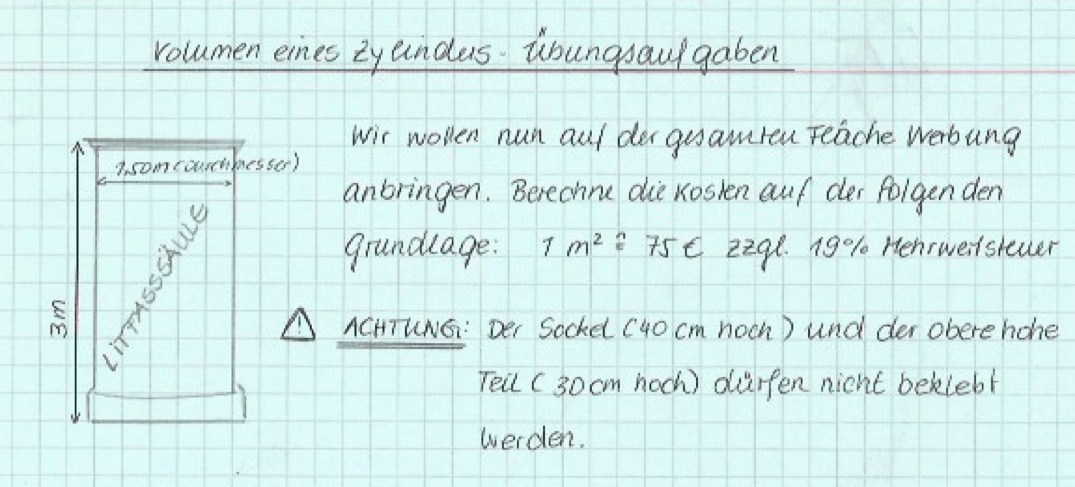 Volumen eines Zylinders - Übungsaufgaben
1,50m (Durchmesser)
LITTASSSÄULE
3m
Wir wollen nun auf der gesamten Fläche Werbung
anbringen. Berechne die Kosten auf der folgenden
Grundlage: 1 m² ≙ 75 € zzgl. 19% Mehrwertsteuer
⚠ ACHTUNG: Der Sockel (40 cm hoch) und der obere hohe
Teil (30 cm hoch) dürfen nicht beklebt
werden.